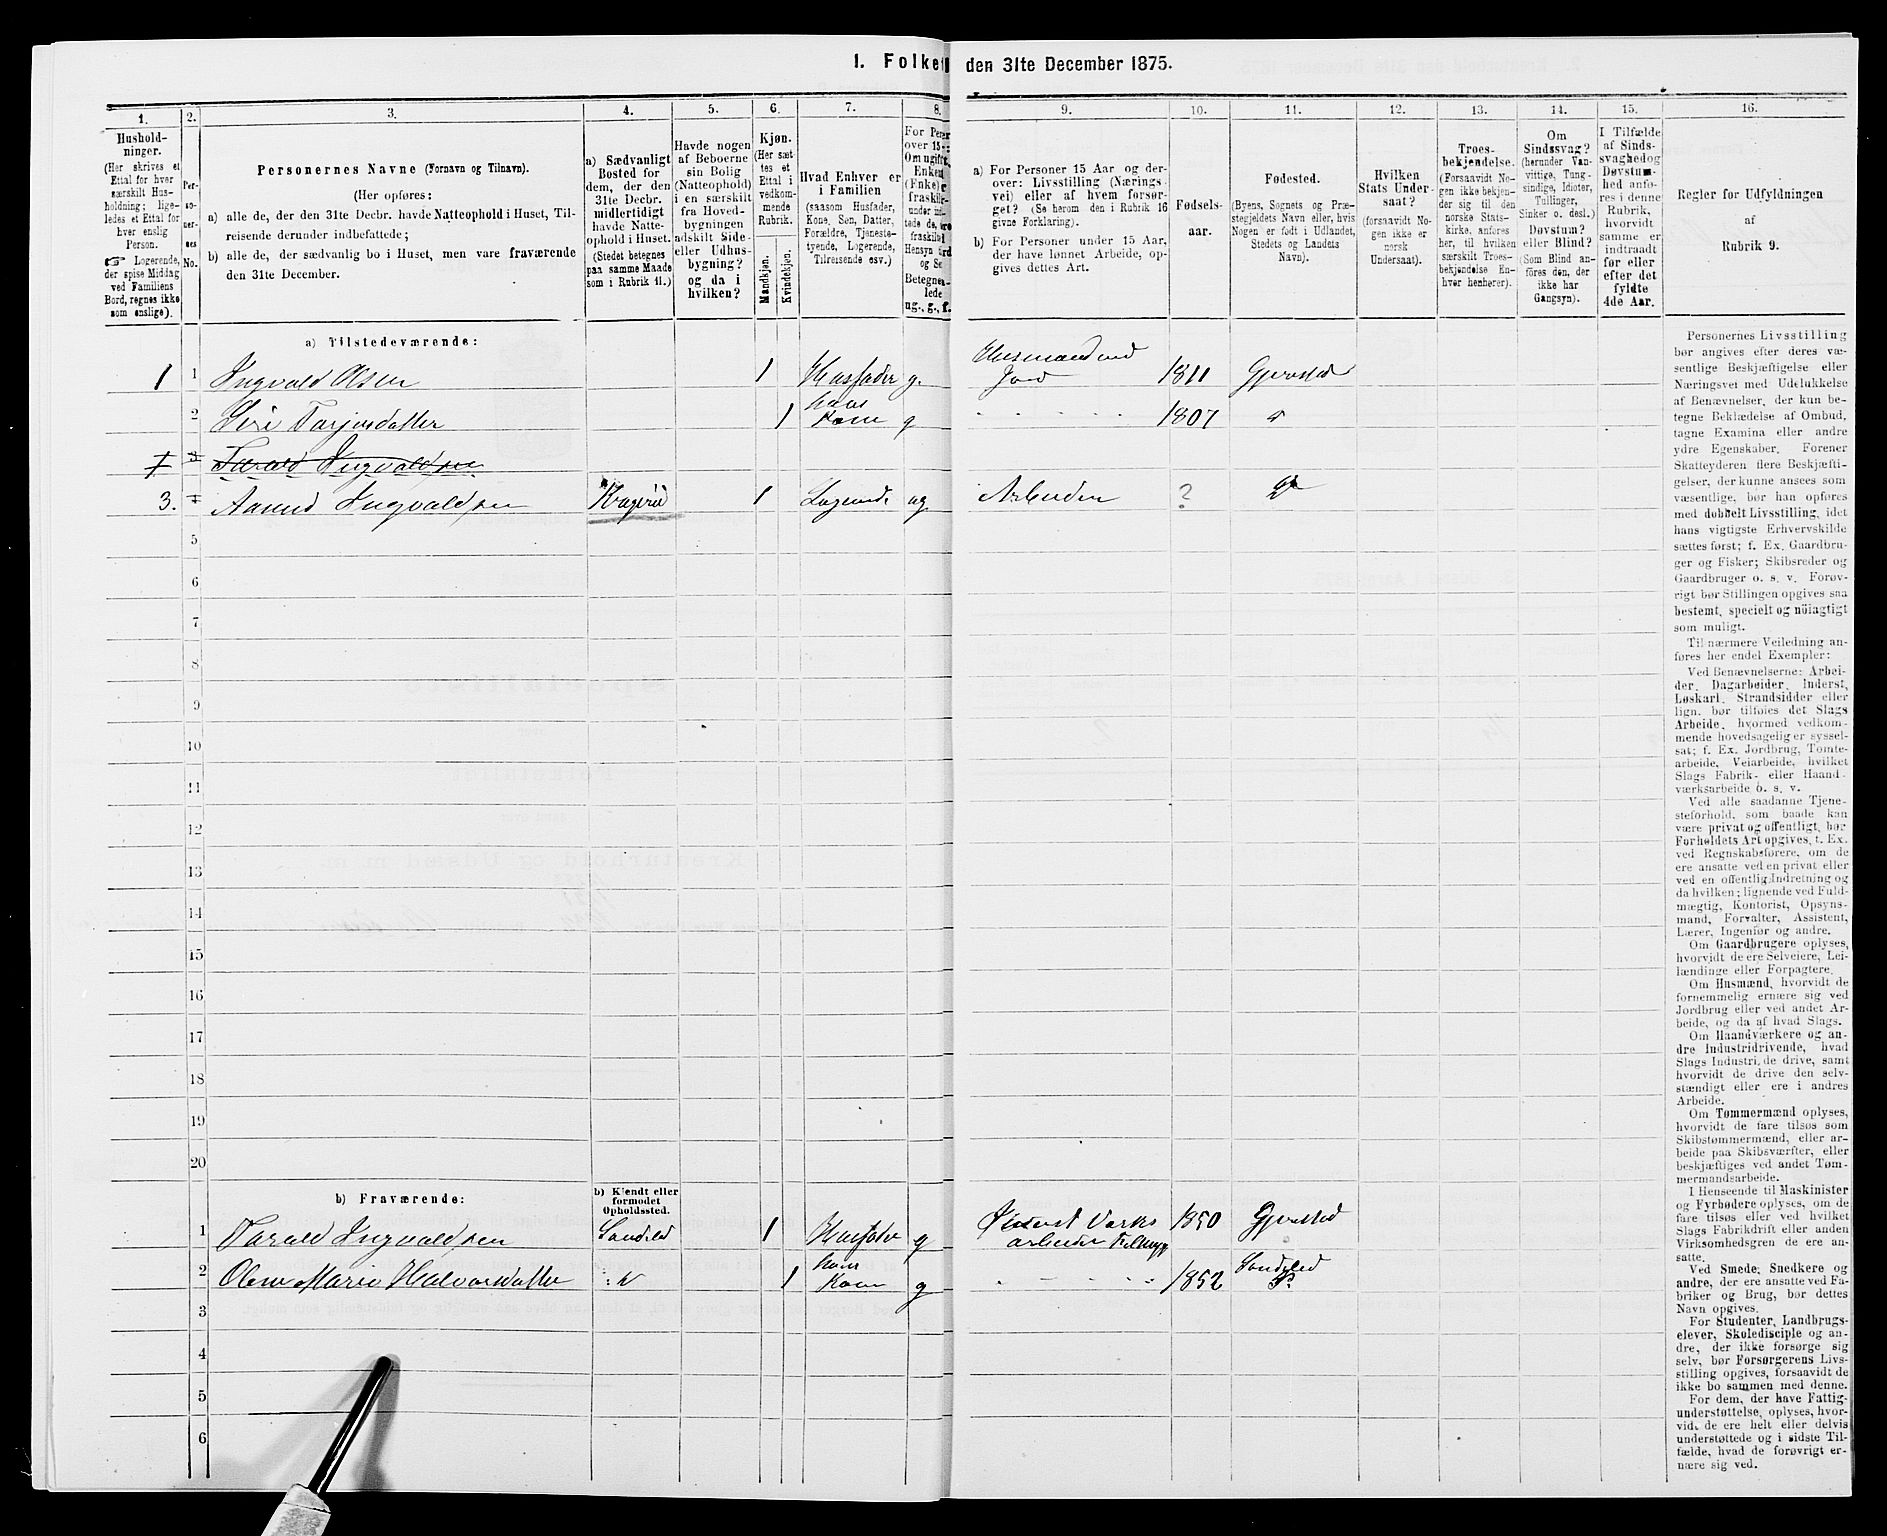 1. Folket
den 31te December 1875.
1.
Hushold-
ninger.
(Her skrives et
Ettal for hver
særskilt Hus-
holdning; lige-
ledes et Ettal for
hver enslig
Person.
☞ Logerende,
der spise Middag
ved Familiens
Bord, regnes ikke
som enslige).
2.
Per-
so-
ner-
nes
No.
3.
Personernes Navne (Fornavn og Tilnavn).
(Her opføres:
a) alle de, der den 31te Decbr. havde Natteophold i Huset, Til-
reisende derunder indbefattede;
b) alle de, der sædvanlig bo i Huset, men vare fraværende
den 31te December.
4.
a) Sædvanligt
Bosted for
dem, der den
31te Decbr.
midlertidigt
havde Natte-
ophold i Huset.
(Stedet betegnes
paa samme Maade
som i Rubrik 11.)
5.
Havde nogen
af Beboerne
sin Bolig
(Natteophold)
i en særskilt
fra Hoved-
bygningen
adskilt Side-
eller Udhus-
bygning?
og da i
hvilken?
6.
Kjøn.
(Her sæt-
tes et
Ettal i
vedkom-
mende
Rubrik.
Mandkjøn.
Kvindekjøn.
7.
Hvad Enhver er
i Familien
(saasom Husfader,
Kone, Søn, Datter,
Forældre, Tjeneste-
tyende, Logerende,
Tilreisende osv.)
8.
For Per
over 15
Om ugift,
Enkem
(Enke)
fraskil
Hensyn
og Se
Betegne
lede
ug., g., f.
9.
a) For Personer 15 Aar og der-
over: Livsstilling (Nærings-
vei) eller af hvem forsør-
get? (Se herom den i Rubrik 16
givne Forklaring).
b) For Personer under 15 Aar,
der have lønnet Arbeide, op-
gives dettes Art.
10.
Fødsels-
aar.
11.
Fødested.
(Byens, Sognets og Præ-
stegjeldets Navn eller, hvis
Nogen er født i Udlandet,
Stedets og Landets
Navn).
12.
Hvilken
Stats Under-
saat?
(forsaavidt No-
gen ikke er
norsk
Undersaat).
13.
Troes-
bekjendelse.
(Forsaavidt No-
gen ikke bekjen-
der sig til den
norske Stats-
kirke, anføres
her, til hvilken
særskilt Troes-
bekjendelse En-
hver henhører).
14.
Om
Sindssvag?
(herunder Van-
vittige, Tung-
sindige, Idioter,
Tullinger,
Sinker o. desl.)
Døvstum?
eller Blind?
(Som Blind an-
føres den, der
ikke har
Gangsyn).
15.
I Tilfælde
af Sinds-
svaghed og
Døvstum-
hed anfø-
res i denne
Rubrik,
hvorvidt
samme er
indtraadt
før eller
efter det
fyldte
4de Aar.
16.
Regler for Udfyldningen
af
Rubrik 9.
a) Tilstedeværende:
1 1 Ingvald Olsen 1 Husfader g. Husmand med
Jord 1811 Gjerstad
2 Siri Tarjesdatter 1 hans
Kone g " " " " " 1807 "
1 3 Tarald Ingvaldsen
3. 4 Aanund Ingvaldsen Kragerø 1 Logerende ug Arbeider ? D
5
6
7
8
9
10
11
12
13
14
15
16
17
18
19
20
b) Fraværende:
b) Kjendt eller
formodet
Opholdssted.
1 Tarald Ingvaldsen Sandeled 1 Husfader g 1850 Gjerstad
arbeider
2 Olene Marie Halvorsdatter 1 hans
Kone g " " " " " 1852 Sandeled
3
4
5
6
Personernes Livsstilling
bør angives efter deres væ-
sentlige Beskjæftigelse eller
Næringsvei med Udelukkelse
af Benævnelser, der kun be-
tegne Beklædelse af Ombud,
tagne Examina eller andre
ydre Egenskaber. Forener
Skatteyderen flere Beskjæfti-
gelser, der kunne ansees som
væsentlige, bør han opføres
med dobbelt Livsstilling, idet
hans vigtigste Erhvervskilde
sættes først; f. Ex. Gaardbru-
ger og Fisker; Skibsreder og
Gaardbruger o. s. v. Forøv-
rigt bør Stillingen opgives saa
bestemt, specielt og nöiagtigt
som muligt.
Til nærmere Veiledning an-
føres her endel Exempler:
Ved Benævnelserne: Arbei-
der, Dagarbeider, Inderst,
Løskarl, Strandsidder eller
lign. bør tilføies det Slags
Arbeide, hvormed vedkom-
mende hovedsagelig er syssel-
sat; f. Ex. Jordbrug, Tomte-
arbeide, Veiarbeide, hvilket
Slags Fabrik- eller Haand-
værksarbeide o. s. v.
Ved alle saadanne Tjene-
steforhold, som baade kan
være privat og offentligt, bør
Forholdets Art opgives, f. Ex.
ved Regnskabsførere, om de
ere ansatte ved en privat eller
ved en offentlig Indretning og
da hvilken; lignende ved Fuld-
mægtig, Kontorist, Opsyns-
mand, Forvalter, Assistent,
Lærer, Ingeniør og andre.
Om Gaardbrugere oplyses,
hvorvidt de ere Selveiere, Lei-
lændinge eller Forpagtere.
Om Husmænd, hvorvidt de
fornemmelig ernære sig ved
Jordbrug eller ved andet Ar-
beide, og da af hvad Slags.
Om Haandværkere og an-
dre Industridrivende, hvad
Slags Industri de drive, samt
hvorvidt de drive den selv-
stændigt eller ere i andres
Arbeide.
Om Tømmermænd oplyses,
hvorvidt de fare tilsøs som
Skibstømmermænd, eller ar-
beide paa Skibsværfter, eller
beskjæftiges ved andet Tøm-
mermandsarbeide.
I Henseende til Maskinister
og Fyrbødere oplyses, om de
fare tilsøs eller ved hvilket
Slags Fabrikdrift eller anden
Virksomhedsgren de ere an-
satte.
Ved Smede, Snedkere og
andre, der ere ansatte ved Fa-
briker og Brug, bør dettes
Navn opgives.
For Studenter, Landbrugs-
elever, Skoledisciple og an-
dre, der ikke forsørge sig
selv, bør Forsørgerens Livs-
stilling opgives, forsaavidt de
ikke bo sammen med denne.
For dem, der have Fattig-
understøttelse, oplyses, hvor-
vidt de ere helt eller delvis
understøttede og i sidste Til-
fælde, hvad de forøvrigt er-
nære sig ved.